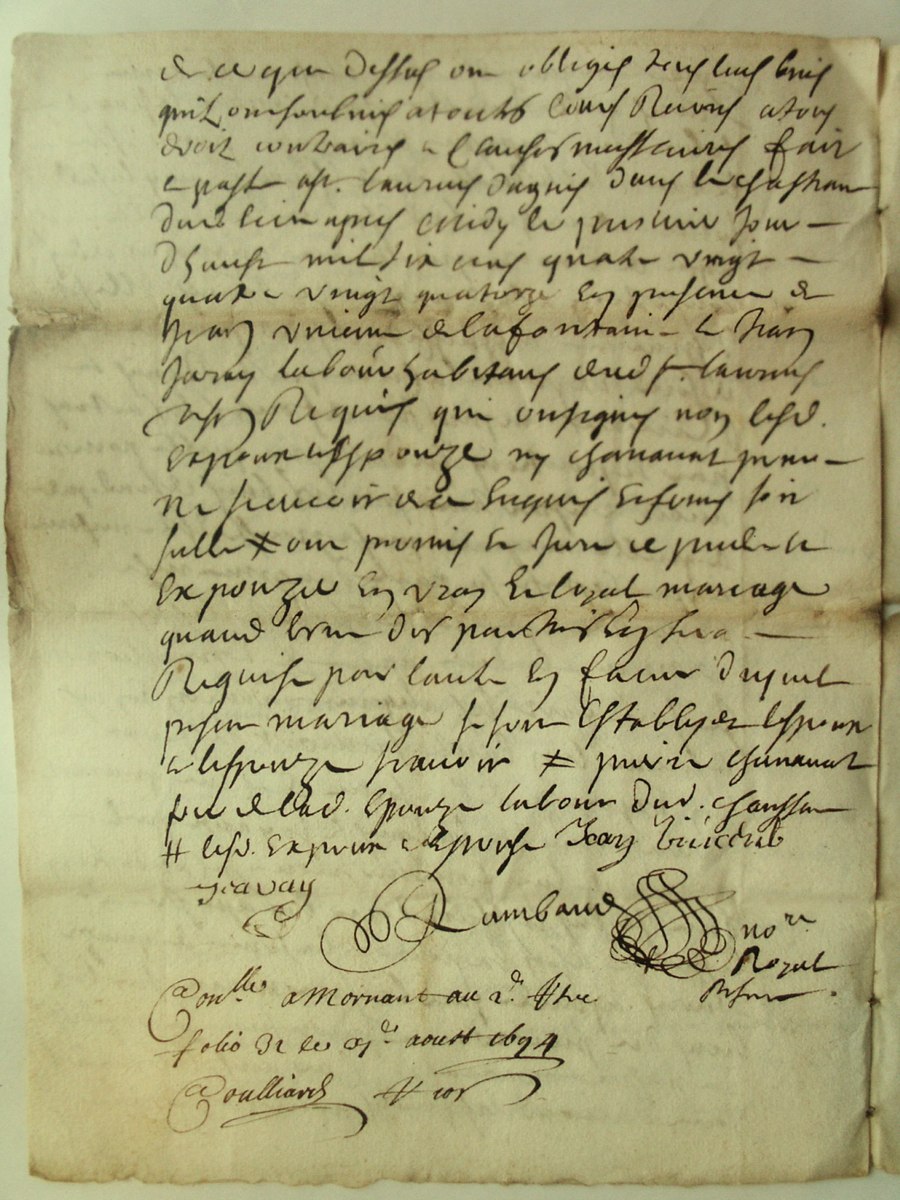 de ce que dessus ont obligés tous leurs biens
qu'ils ont soubmis a toutes cours Renons a tous
droit contraires et clauses necessaires fait
et passé a St. Laurens dagnis dans le chasteau
dud. lieu apres midy le premier jour
d'aoust mil six cens quatre vingt
quatre vingt quatorze en presence de
Jean Vincent de la fontaine et Jean
Javay labour habitans dud St. laurens
tesm Requis qui ont signés non lesd.
Expoux et Espouze ny chanavat pour
ne scavoir de ce Enquis et sommés soit
sulle # ont promis et juré se prendre et
Expouzer En vray et loyal mariage
quand l'une des parties En sera
Requise par l'autre En faveur duquel
present mariage se sont Establys lespoux
et lespouze scavoir # pierre chanavat
pere de lad. Epouze labour dud. chaussan
# lesd. Expoux et Espouse Jean Vincend
Javay
Rambaud no.re
Royal
Reserve
Con.lle a Mornant au 2.d Rtre
folio 32 le aoust 1694
Goulliard